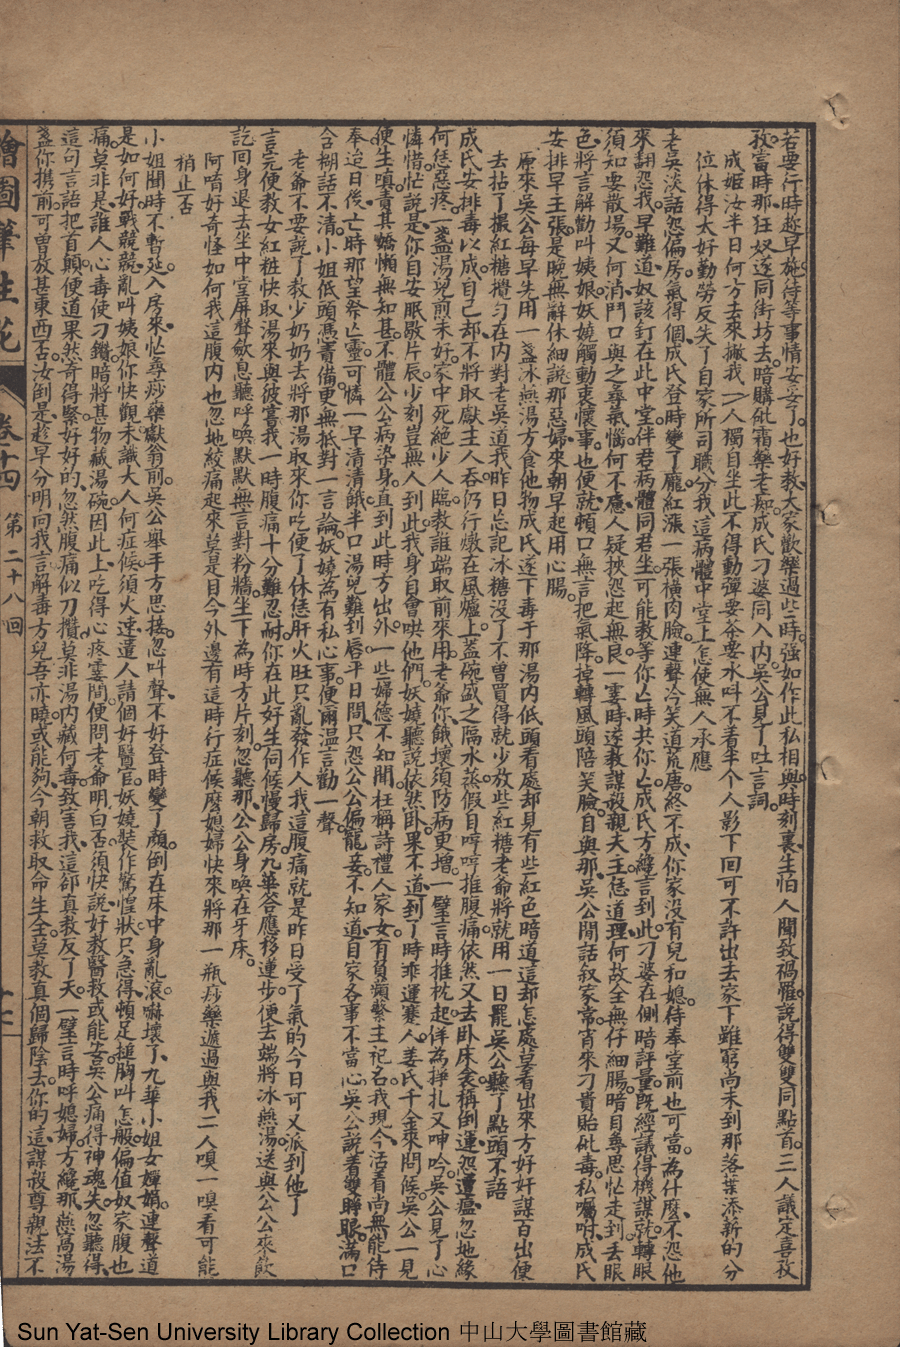 若要行時趁早施待等事情安妥了也好教大家歡樂過些時強如作此私相與時刻裏生怕人聞致禍罹說得雙雙同點首三人議定喜孜
孜當時那狂奴遂同街坊去暗購砒霜藥老痴成氏刁婆同入內吳公見了吐言詞
成姬汝半日何方去來撇我一人獨自坐此不得動彈要茶要水呌不着半个人影下回可不許出去家下雖窮尚未到那落葉添新的分
位休得太好勤勞反失了自家所司職分我這病體中堂上怎使無人承應
老吳淡話怨偏房氣得個成氏登時變了龐紅漲一張橫肉臉連聲冷笑道荒唐終不成你家沒有兒和媳侍奉堂前也可當為什麼不怨他
來翻怨我早難道奴該釘在此中堂伴君病體同君生可能教等你亡時共你亡成氏方纔言到此刁婆在側暗評量既經議得機謀就轉眼
須知要散場又何消鬥口與之尋氣惱何不慮人疑挾怨起無良一霎時遂教謀殺親夫主恁道理何故全無仔細腸暗目尋思忙走到丟眼
色將言解勸叫姨娘妖嬈觸動衷懷事也便就頓口無言把氣降掉轉風頭陪笑臉自與那吳公閒話叙家常宵來刁貴貽砒毒私囑咐成氏
安排早主張是晚無辭休細說那惡婦來朝早起用心腸
原來吳公每早先用一盞冰燕湯方食他物成氏遂下毒于那湯內低頭看處却見有些紅色暗道這却怎處莫看出來方好好謀百出便
去拈了撮紅糖攪勻在內對老吳道我昨日忘記冰糖沒了不曾買得就少放些紅糖老爺將就用一日罷吳公聽了點頭不語
成氏安排毒以成自己却不將取獻主人吞仍行燉在風爐上蓋碗盛之隔水蒸假自哼哼推腹痛依然又去卧床衾稱倒運怨遭瘟忽地緣
何恁惡疼一盞湯兒煎未好家中死絕少人臨教誰端取前來用老爺你餓壞須防病更增一壁言時推枕起佯為掙扎又呻吟吳公見了心
憐惜忙說是你自安眠歇片辰少刻豈無人到此我身自會哄他們妖嬈聽說依然卧果不道到了時乖運蹇人姜氏千金來問候吳公一見
便生嗔責其嬌懶無知甚不體公公病染身直到此時方出外一些婦德不知聞枉稱詩禮人家女有負蘋蘩主祀名我現今活着尚無能侍
奉迨日後亡時那望祭亡靈可憐一早清清餓半口湯兒難到唇平日間只怨公公偏寵妾不知道自家各事不當心吳公說着雙睜眼滿口
含糊話不清小姐低頭憑責備更無抵對一言論妖嬈為有私心事便爾溫言勸一聲
老爺不要說了教少奶奶去將那湯取來你吃便了休恁肝火旺只亂發作人我這腹痛就是昨日受了氣的今日可又派到他了
言完便教女紅粧快取湯來與彼嘗我一時腹痛十分難忍耐你在此好生伺候慢歸房九華答應移蓮步便去端將冰燕湯送與公公來飲
訖回身退去坐中堂屏聲歛息聽呼喚默默無言對粉牆坐下為時方片刻忽聽那公公身喚在牙床
阿唷好奇怪如何我這腹內也忽地絞痛起來莫是目今外邊有這時行症候麼媳婦快來將那一瓶痧藥遞過與我二人嗅一嗅看可能
稍止否
小姐聞時不暫延入房來忙尋痧藥獻翁前吳公舉手方思接忽叫聲不好登時變了顏倒在床中身亂滾嚇壞了九華小姐女嬋娟連聲道
是如何好戰兢兢亂叫姨娘你快觀未識大人何症候須火速遣人請個好醫官妖嬈裝作驚惶狀只急得頓足搥胸叫怎般偏值奴家腹也
痛莫非是誰人心毒使刁鑽暗將甚物藏湯碗因此上吃得心疼霎間便問老爺明白否須快說好教醫救或能安吳公痛得神魂失忽聽得
這句言語把首顛便道果然奇得緊好好的忽然腹痛似刀攢莫非湯內藏何毒致害我這卻真教反了天一壁言時呼媳婦方纔那燕窩湯
盞你携前可曾放甚東西否汝倒是趁早分明向我言解毒方兒吾亦曉或能夠今朝救取命生全莫教真個歸陰去你的這謀殺尊親法不
繪圖筆生花 卷十四 第二十八回
Sun Yat-Sen University Library Collection 中山大學圖書館藏